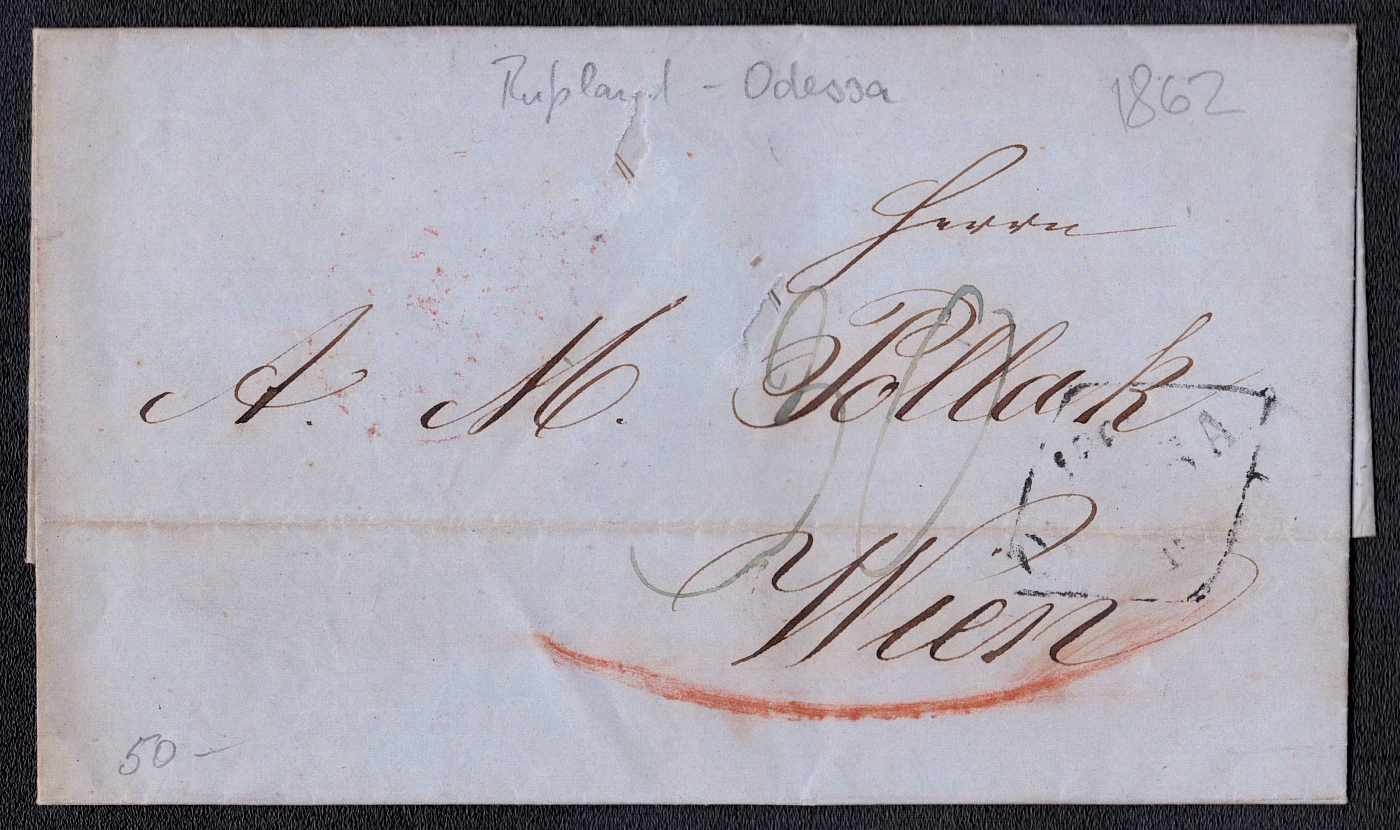 Rußland - Odessa
1862
Herrn
A. M. Pollak
30
Wien
50 -